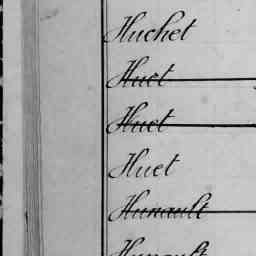 Huchet
Huet
Huet
Huet
Hunault
Hunault